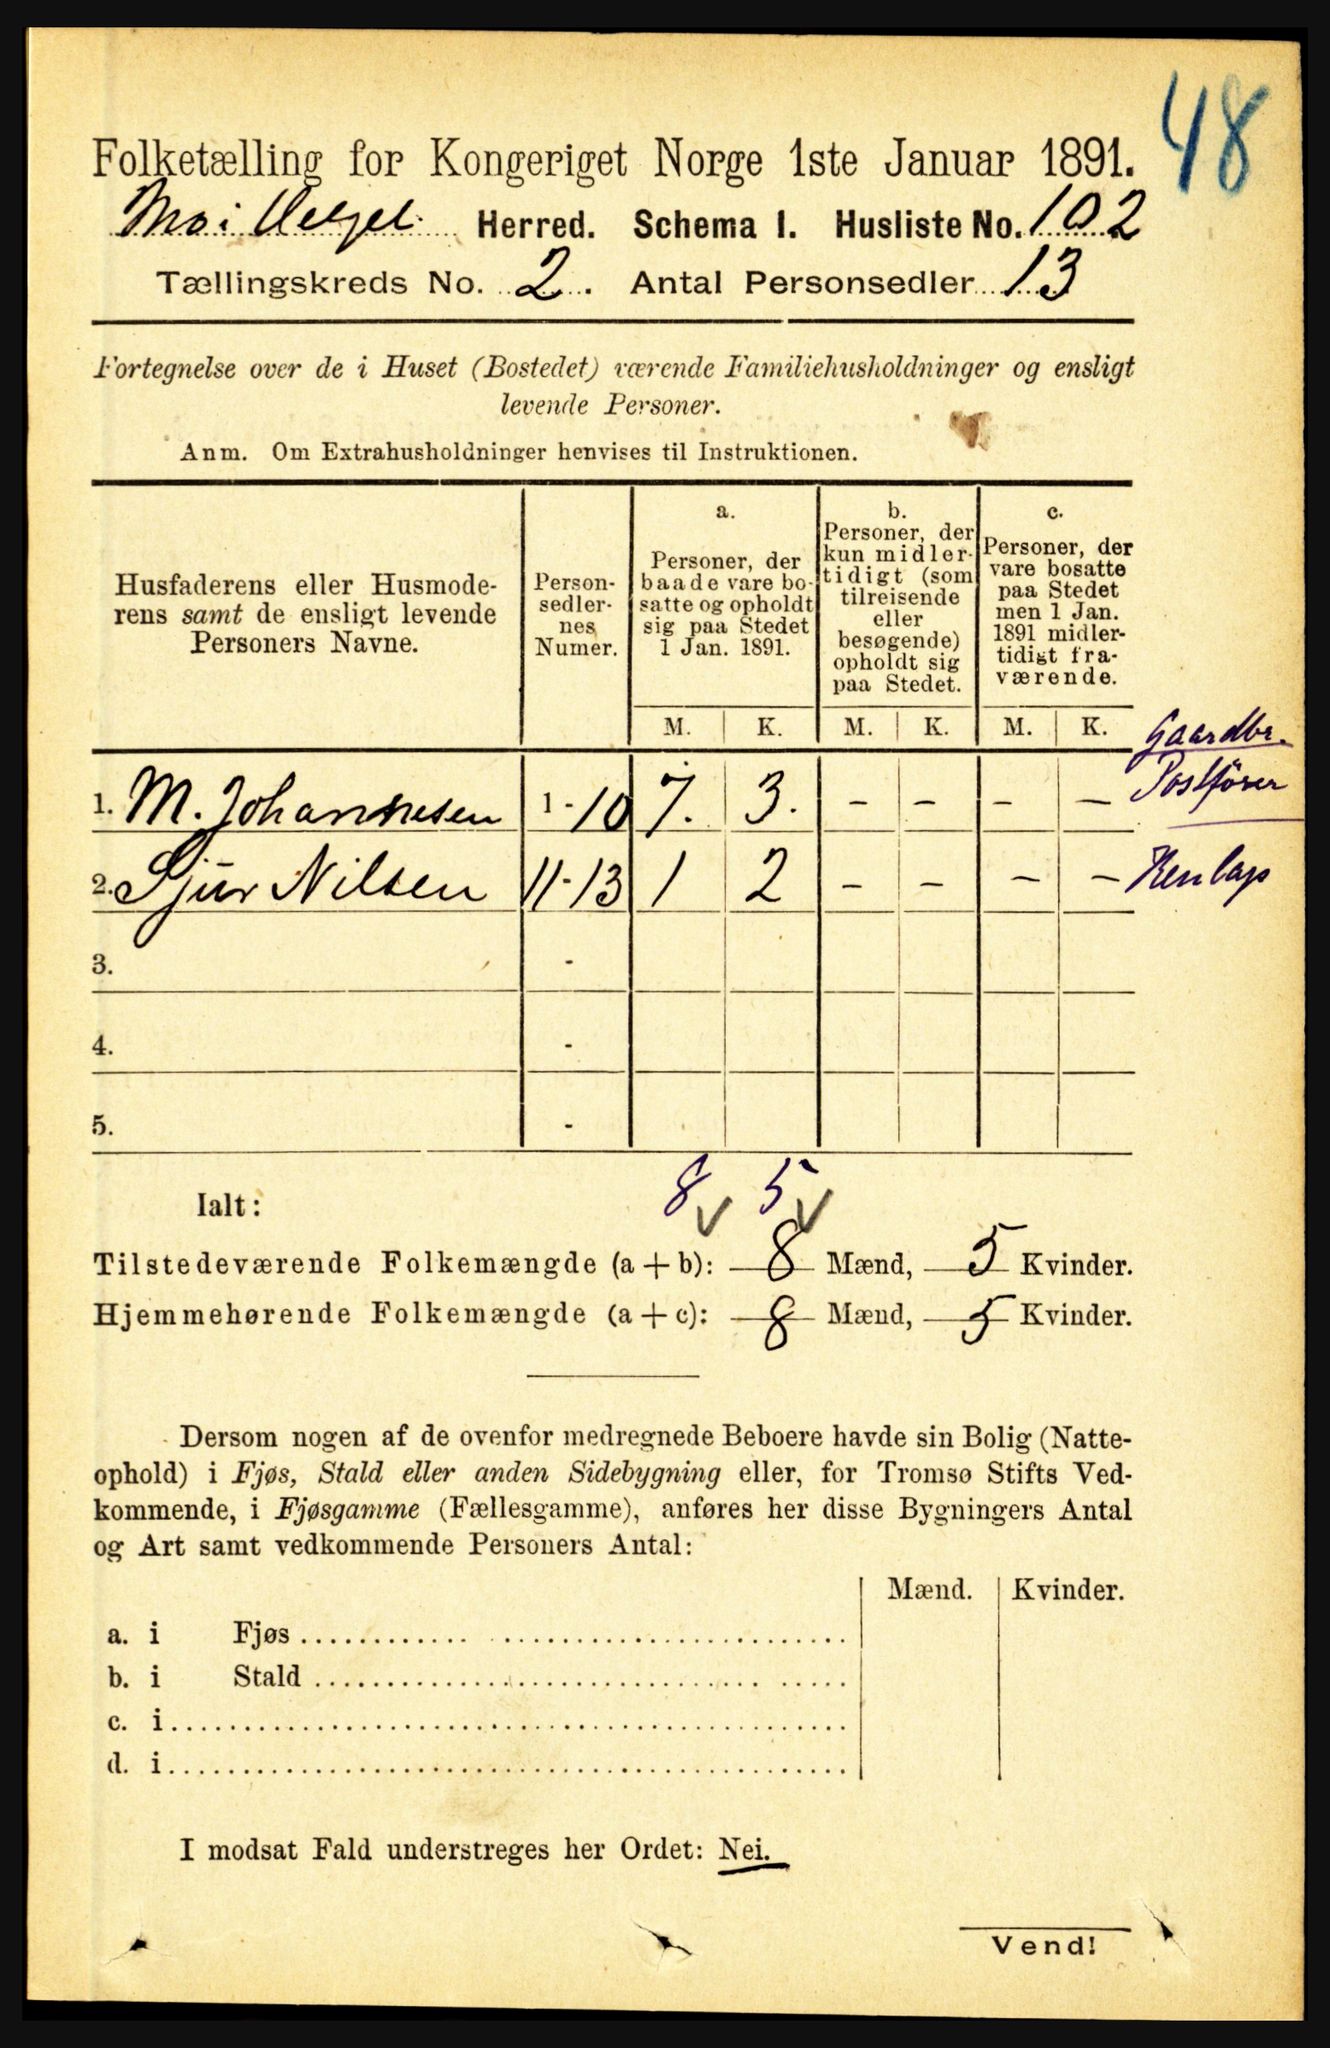 48
Folketælling for Kongeriget Norge 1ste Januar 1891.
Mo i Herred. Schema 1. Husliste No. 102
Tællingskreds No. 2. Antal Personsedler 13
Fortegnelse over de i Huset (Bostedet) værende Familiehusholdninger og ensligt
levende Personer.
Anm. Om Extrahusholdninger henvises til Instruktionen.
Husfaderens eller Husmode-
rens samt de ensligt levende
Personers Navne.
Person-
sedler-
nes
Numer.
a.
Personer, der
baade vare bo-
satte og opholdt
sig paa Stedet
1 Jan. 1891.
b.
Personer, der
kun midler-
tidigt (som
tilreisende
eller
besøgende)
opholdt sig
paa Stedet.
c.
Personer, der
vare bosatte
paa Stedet
men 1 Jan.
1891 midler-
tidigt fra-
værende.
M. K. M. K. M. K.
Gaardbr.
Postfører
1. M. Johannesen 1-10 7. 3. - - - -
2. Sjur Nilsen 11-13 1 2 - - - -
3. -
4. -
5. -
Ialt: 8 5
Tilstedeværende Folkemængde (a + b): 8 Mænd, 5 Kvinder.
Hjemmehørende Folkemængde (a + c): 8 Mænd, 5 Kvinder.
Dersom nogen af de ovenfor medregnede Beboere havde sin Bolig (Natte-
ophold) i Fjøs, Stald eller anden Sidebygning eller, for Tromsø Stifts Ved-
kommende, i Fjøsgamme (Fællesgamme), anføres her disse Bygningers Antal
og Art samt vedkommende Personers Antal:
Mænd. Kvinder.
a. i Fjøs
b. i Stald
c. i
d. i
I modsat Fald understreges her Ordet: Nei.
Vend!